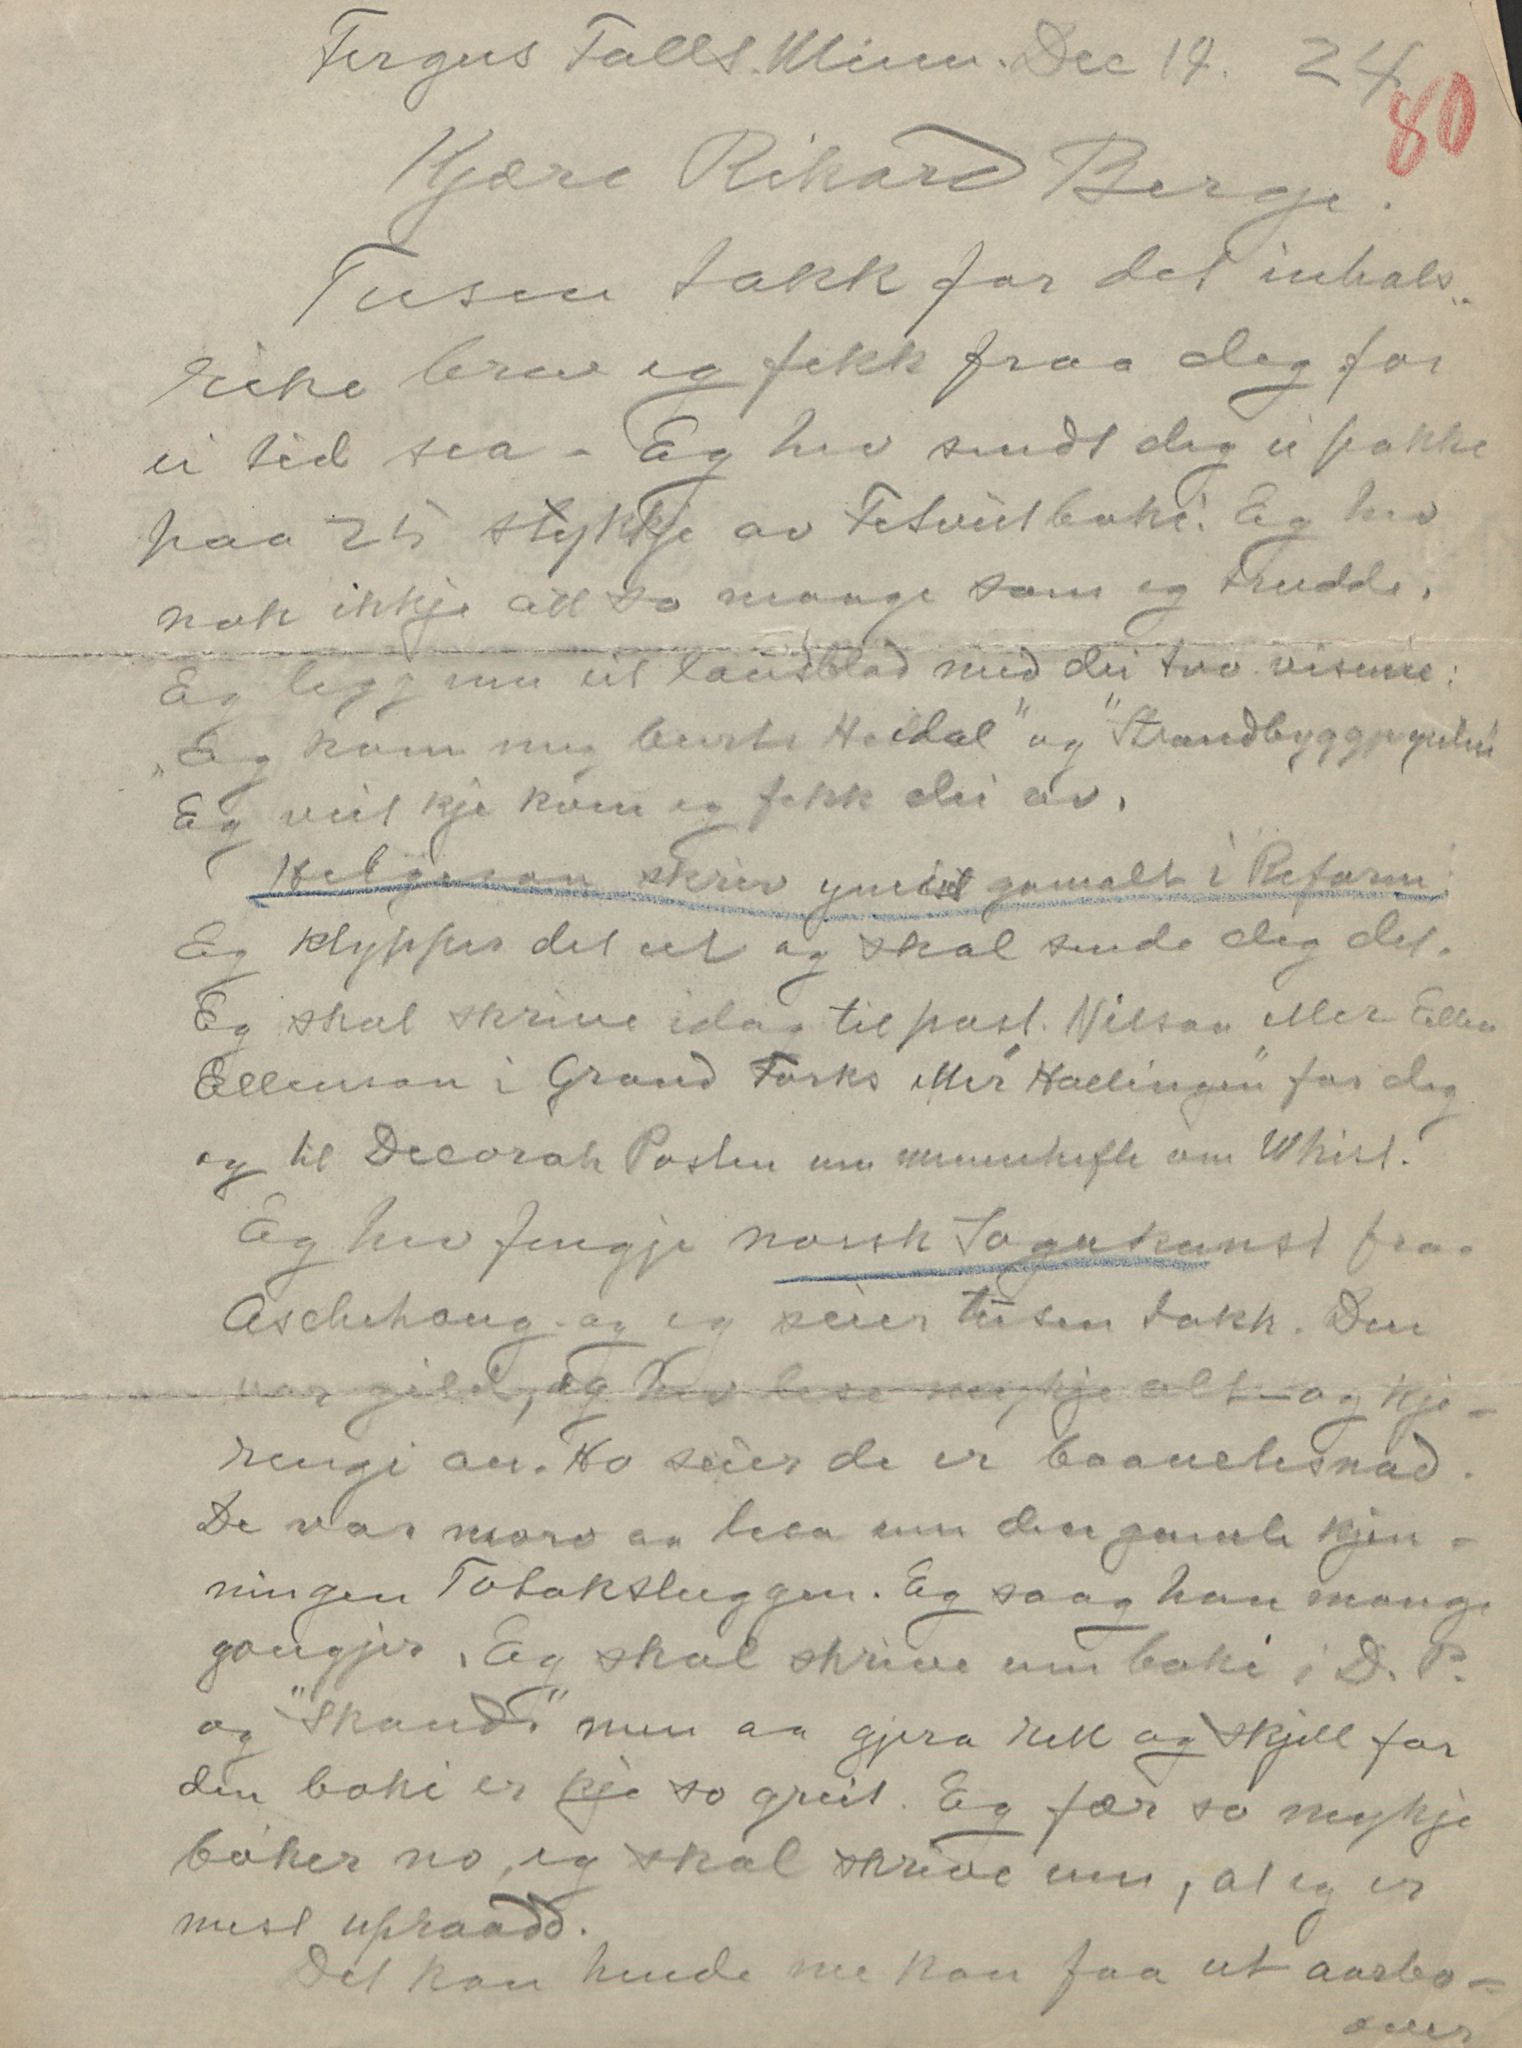 Fergus Falls. Minn. Dec 19. 24
80
Kjære Rikard Berge.
Tusen takk for det inhals-
rike brev eg fekk fraa deg for
ei tid sea - Eg hev sendt deg ei pakke
paa 25 stykkje av Fetveitboki. Eg hev
nok ikkje att so mange som eg trudde.
Eg legg inn eit lausblad med dei two visune:
"Eg kom meg burt i Heidal" og "Strandbyggj
Eg veit kje kem eg fekk dei av.
Helgeson skriv ymist gamalt i Reform.
Eg klypper det ut og skal sende deg det.
Eg skal skrive idag til past. Nilson etter Ellen
Ellenson i Grand Forks etter "Hallingen" for deg
og til Decorah Posten um minnehefte om Whist.
Eg hev fengje norsk Sogukunst fraa
Aschehoug og eg seier tusen takk. Den
var gild, eg hev lese mykje alt - og kje-
ringi au. Ho seier de er baaneles mad.
De var moro aa lesa um den gamle kjen-
ningen Totaksluggen. Eg saag han mange
gongjer. Eg skal skrive um boki i D. P.
og "Skand." men aa gjera rett og skjell for
den boki er kje so greit. Eg fær so mykje
bøker no, eg skal skrive um, at eg er
mest upraadd.
Det kan hende me kan faa ut aarbo-
over